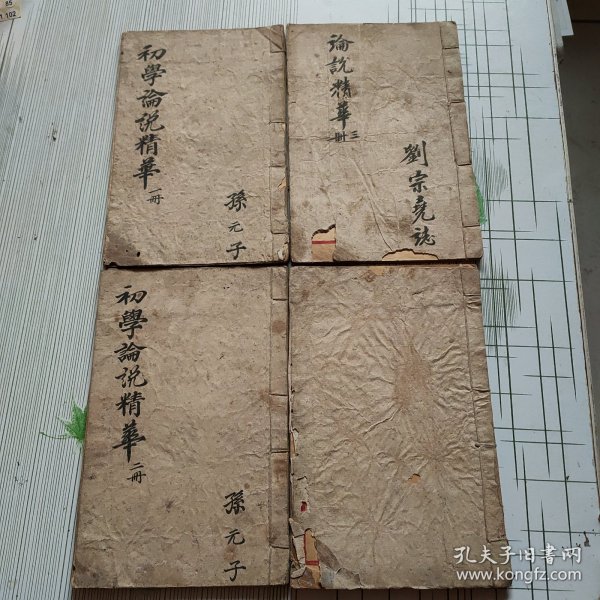 初學論説精華 一册
孫元子
論說精華 三冊
劉宗堯誌
初學論説精華 二冊
孫元子
孔夫子旧书网
www.kongfz.com
85
102